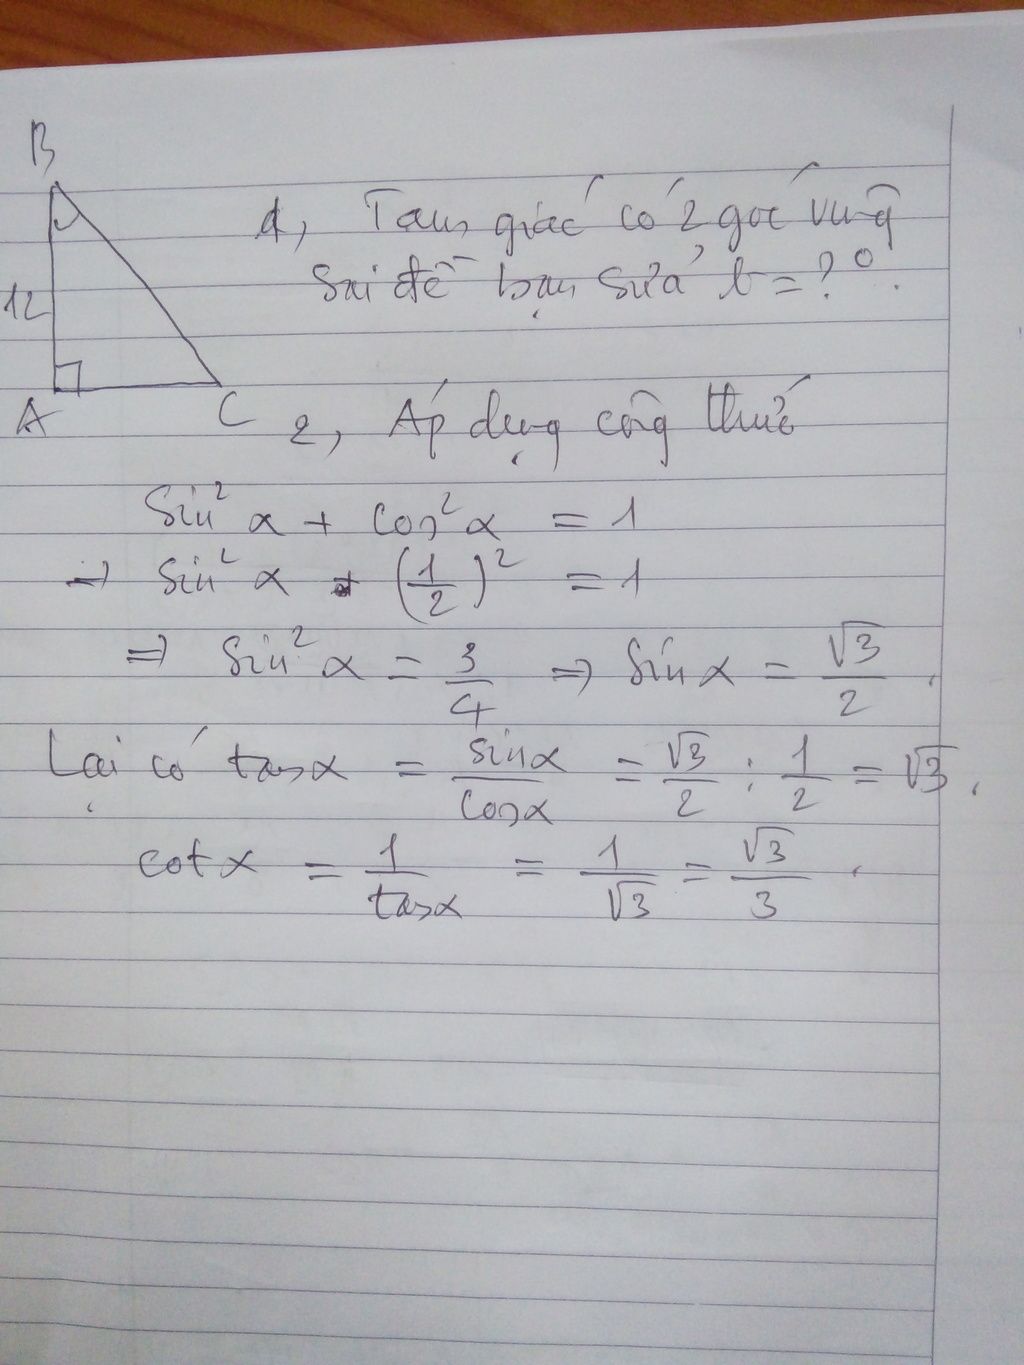 B
1, Tam giác có 2 góc vuông
Sai đề bạn sửa b = ?°.
12
A
C
2, Áp dụng công thức
Sin² α + cos² α = 1
→ Sin² α + (1/2)² = 1
⇒ Sin² α = 3/4 ⇒ Sin α = √3/2.
Lại có tan α = sin α/cos α = √3/2 : 1/2 = √3.
cot α = 1/tan α = 1/√3 = √3/3.